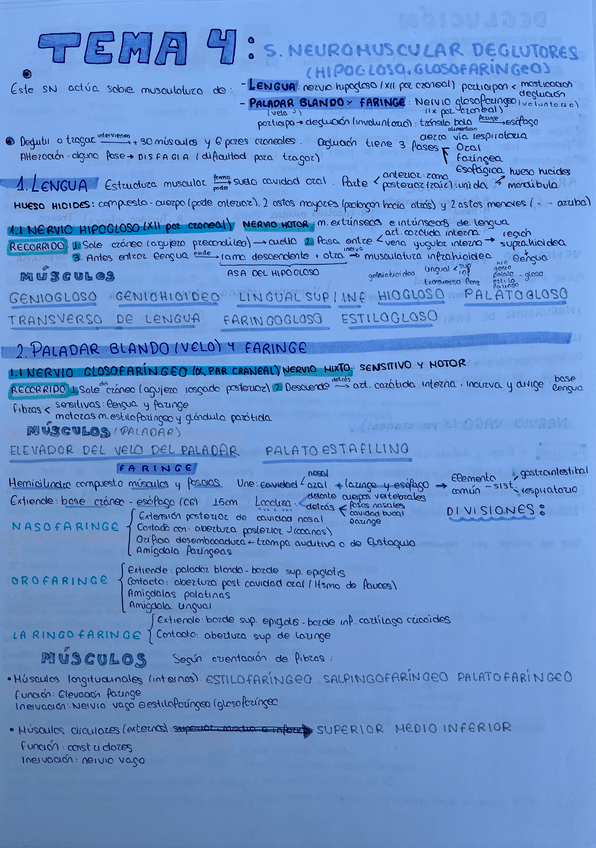 TEMA 4: S. NEUROMUSCULAR DEGLUTORES
(HIPOGLOSO, GLOSOFARÍNGEO)
Este SN actúa sobre musculatura de: - LENGUA: nervio hipogloso (XII par craneal) participan < masticación
deglución
(voluntaria)
- PALADAR BLANDO Y FARINGE: Nervio glosofaríngeo
(velo) (IX par craneal)
participa → deglución (involuntaria): tránsito bolo alimenticio faringe → esófago
aereo via respiratoria
Deglutir o tragar intervienen → +30 músculos y 6 pares craneales. Deglución tiene 3 fases Oral
Faríngea
Esofágica
Alteración alguna fase → DISFAGIA (dificultad para tragar)
1. LENGUA Estructura muscular forma → suelo cavidad oral. Parte < anterior: zona
posterior (raíz): unida hueso hioides
mándibula
HUESO HIOIDES: compuesto - cuerpo (parte anterior), 2 astas mayores (prolongan hacia atrás) y 2 astas menores ( - - arriba)
1.1 NERVIO HIPOGLOSO (XII par craneal) NERVIO MOTOR m. extrínsecos e intrínsecos de lengua
RECORRIDO 1. Sale cráneo (agujero precondíleo) → cuello 2. Pasa entre < art. carótida interna
vena yugular interna → región
suprahioidea
3. Antes entrar lengua emite → rama descendente + otra inerva → musculatura infrahioidea lengua
ASA DEL HIPOGLOSO
MÚSCULOS
GENIOGLOSO GENIOHIOIDEO LINGUAL SUP/INF HIOGLOSO PALATOGLOSO
TRANSVERSO DE LENGUA FARINGOGLOSO ESTILOGLOSO
2. PALADAR BLANDO (VELO) Y FARINGE
1.1 NERVIO GLOSOFARÍNGEO (IX, PAR CRANEAL) NERVIO MIXTO SENSITIVO Y MOTOR
RECORRIDO 1. Sale del cráneo (agujero rasgado posterior) 2. Desciende detrás → art. carótida interna, incurva y dirige base
lengua
Fibras < sensitivas: lengua y faringe
motoras m. estilofaríngeo y glándula parótida
MÚSCULOS (PALADAR)
ELEVADOR DEL VELO DEL PALADAR PALATOESTAFILINO
FARINGE
Hemicilindro compuesto músculos y fascias Une: cavidad < nasal
oral + laringe y esófago → Elemento
común - sist < gastrointestibal
respiratorio
Extiende: base cráneo - esófago (C6) 15cm Localiza - delante cuerpos vertebrales
detrás < fosas nasales
cavidad bucal
laringe
DIVISIONES:
NASOFARINGE Extensión posterior de cavidad nasal
Contacto con: abertura posterior (coanas)
Orificio desembocadura ← trompa auditiva o de Eustaquio
Amígdala Faríngeas
OROFARINGE Extiende: paladar blando - borde sup. epiglotis
Contacto: abertura post cavidad oral (Itsmo de Fauces)
Amígdalas palatinas
Amígdala lingual
LARINGOFARINGE Extiende: borde sup. epiglotis - borde inf. cartílago cricoides
Contacto: abertura sup de laringe
MÚSCULOS Según orientación de fibras:
• Músculos longitudinales (internos): ESTILOFARÍNGEO SALPINGOFARÍNGEO PALATOFARÍNGEO
Función: Elevación Faringe
Inervación: Nervio vago estilofaríngeo (glosofaríngeo)
• Músculos circulares (externos): superior medio e inferior → SUPERIOR MEDIO INFERIOR
Función: constrictores
Inervación: nervio vago